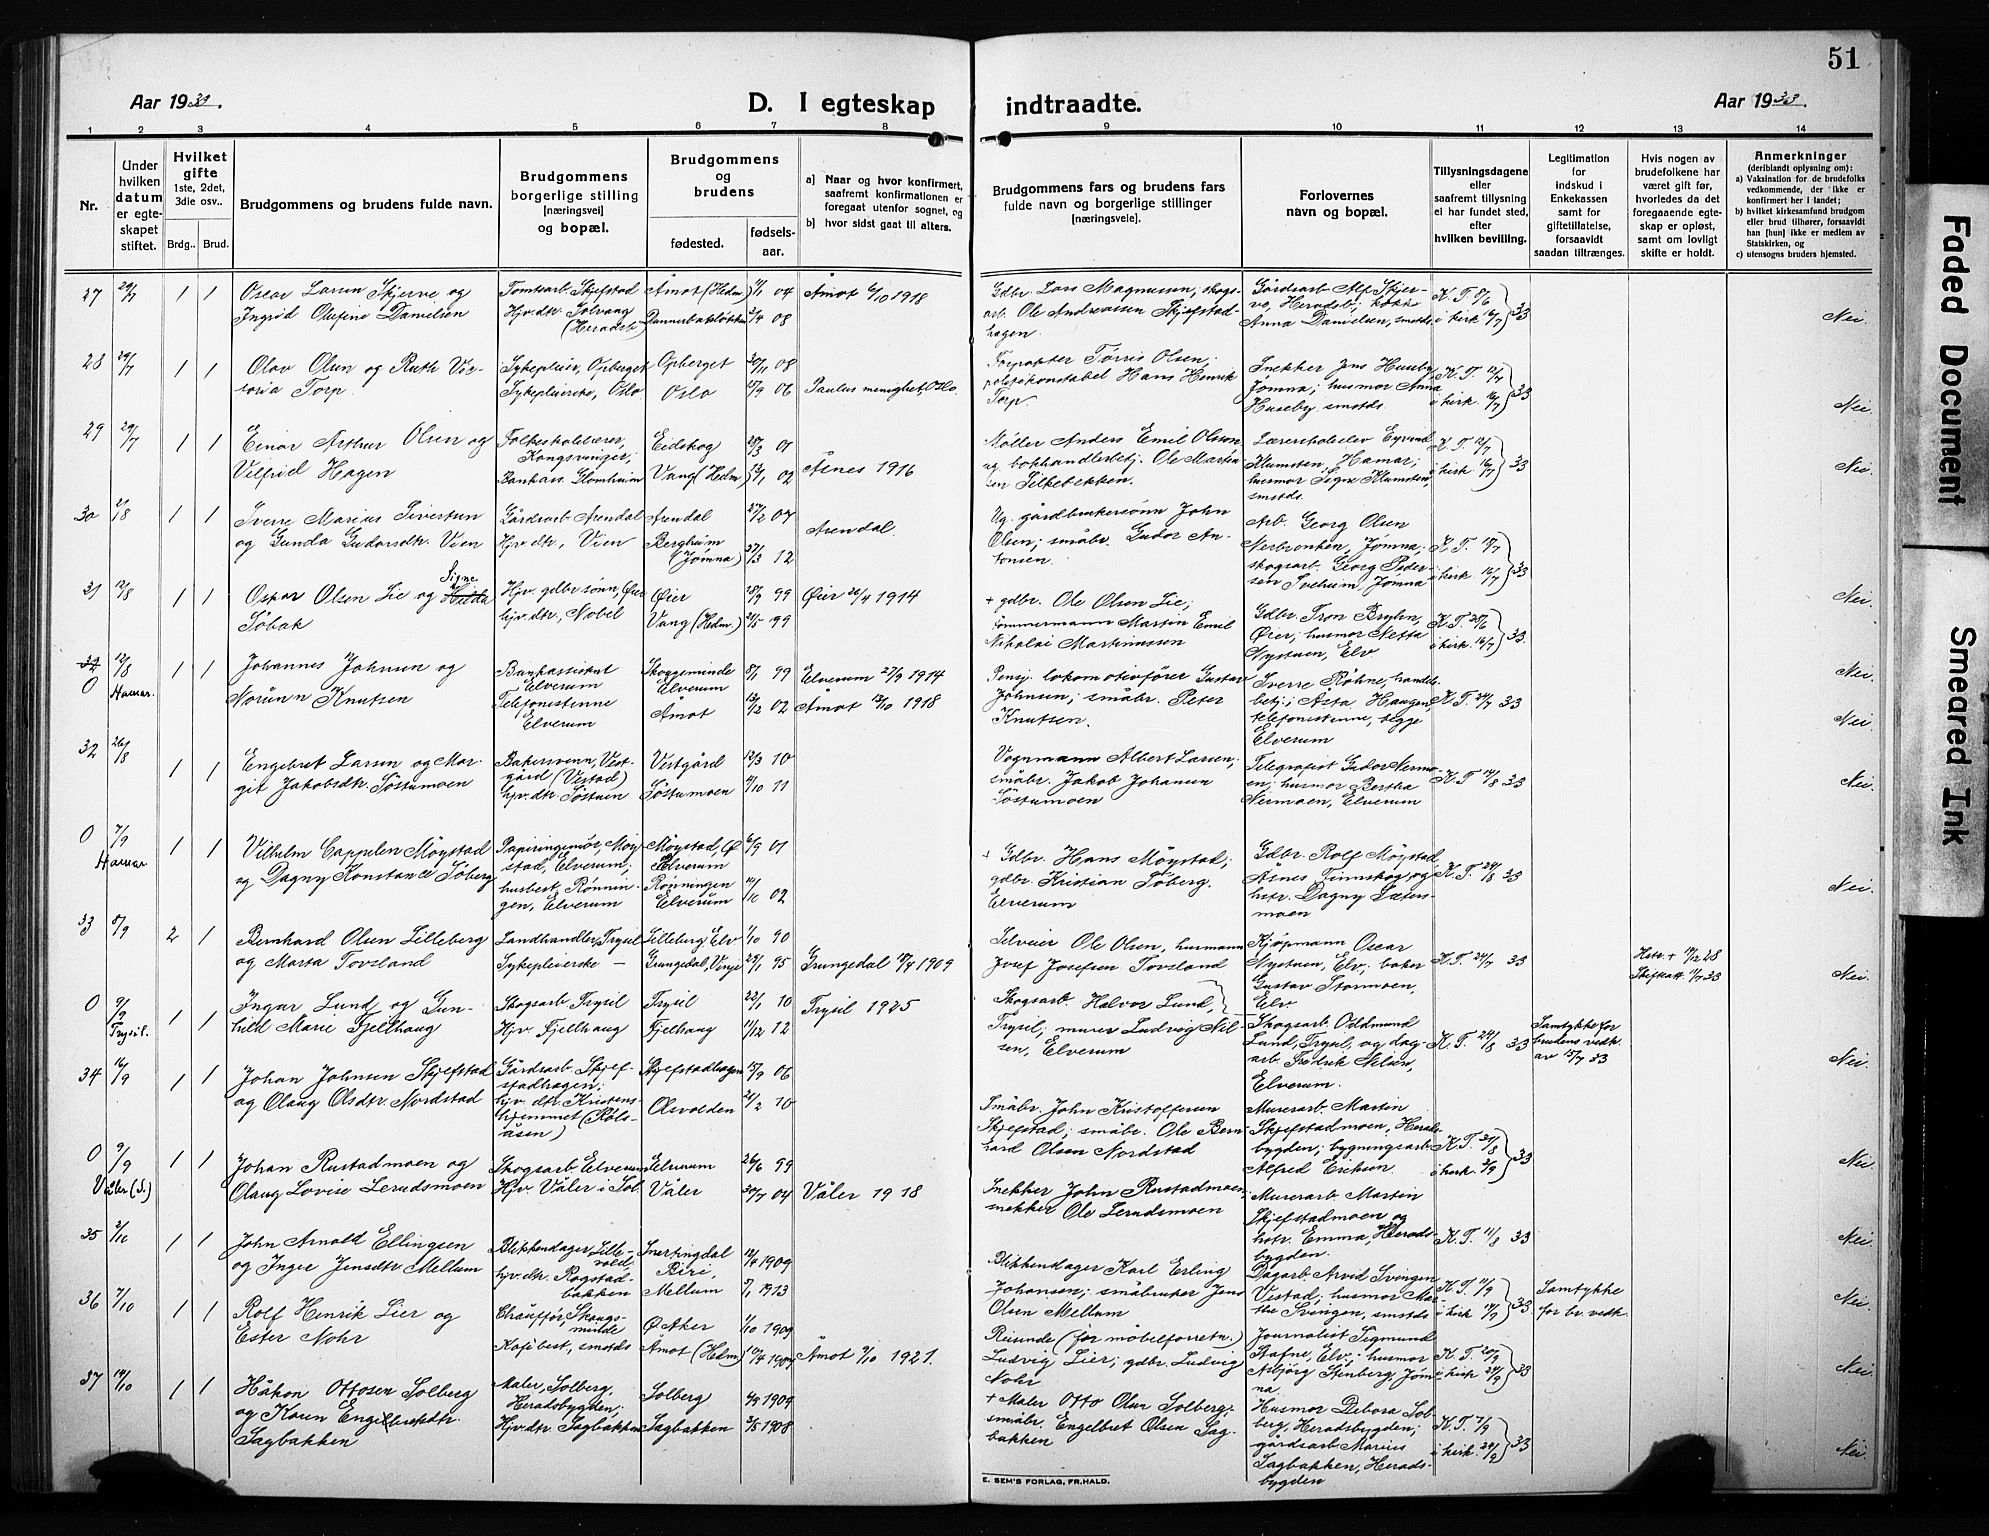 51
Aar 1933.
D. I egteskap
indtraadte.
Aar 1933.
1 2 3 4 5 6 7 8 9 10 11 12 13 14
Nr.
Under hvilken datum er egte-skapet stiftet.
Hvilket gifte
1ste, 2det, 3die osv..
Brdg.. Brud.
Brudgommens og brudens fulde navn.
Brudgommens borgerlige stilling [næringsvei] og bopæl.
Brudgommens og brudens
fødested.
fødsels-aar.
a) Naar og hvor konfirmert, saafremt konfirmationen er foregaat utenfor sognet, og
b) hvor sidst gaat til alters.
Brudgommens fars og brudens fars fulde navn og borgerlige stillinger [næringsveie].
Forlovernes navn og bopæl.
Tillysningsdagene eller saafremt tillysning ei har fundet sted, efter hvilken bevilling.
Legitimation for indskud i Enkekassen samt for giftetillatelse, forsaavidt saadan tiltrænges.
Hvis nogen av brudefolkene har været gift før, hvorledes da det foregaaende egte-skap er opløst, samt om lovligt skifte er holdt.
Anmerkninger
(deriblandt oplysning om):
a) Vaksination for de brudefolks vedkommende, der ikke er konfirmert her i landet;
b) hvilket kirkesamfund brudgom eller brud tilhører, forsaavidt han [hun] ikke er medlem av Statskirken, og
c) utensogns bruders hjemsted.
27 29/7 1 1 Oscar Larsen Skjerve og
Ingrid Olufine Danielsen
Tomtearb. Skjefstad
Hjv. dtr. Solvang
(Heradsb.)
Åmot (Hedm) 04
08
Åmot 6/10 1918
Gdbr. Lars Magnussen, skogs-
arb. Ole Andreassen Skjefstad-
hagen.
Gårdsarb. Alf Skjer-
ve, Heradsb; kokke
Anna Danielsen, smstds.
K. T. 8/6
i kirk 16/7 } 33
Nei.
28 29/7 1 1 Olav Olsen og Ruth Vic-
toria Torp
Sykepleier, Opberget
Sykepleierske, Oslo
Opberget 30/11 08
Oslo 06
Paulus menighet, Oslo.
Forpakter Tørris Olsen;
politikonstabel Hans Henrik
Torp.
Snekker Jens Huseby
Jømna; husmor Anna
Huseby smstds.
K. T. 12/7
i kirk. 16/7 } 33
Nei.
29 29/7 1 1 Einar Arthur Olsen og
Vilfrid Hagen
Folkeskolelærer,
Kongsvinger;
Bankass. Glomheim
Eidskog 01
Vang (Hedm) 02
Åsnes 1916
Møller Anders Emil Olsson
og bokhandlerbetj. Ole Martin
sen Silkebekken.
Lærerskolelev Eyvind
Klumsten, Hamar;
husmor Signe Klumsten,
smstds.
K. T. 12/7
i kirk 16/7 } 33
Nei.
30 2/8 1 1 Sverre Marius Sivertsen
og Gunda Gudarsdtr. Vien
Gårdsarb. Arendal
Hjv. dtr., Vien
Arendal 27/2 07
Bergheim
(Jømna) 27/3 12
Arendal.
Ug. gårdbrukersønn John
Olsen; småbr. Gudor An-
tonsen.
Arb. Georg Olsen
Nesbronken, Jømna;
skogsarb. Georg Peder-
sen Sveheim, Jømna
K. T. 12/7
i kirk. 16/7 } 33
Nei.
31 12/8 1 1 Oskar Olsen Lie og Signe
Søbak
Hjv. gdbr sønn, Øier
hjv. dtr., Nobel
Øier 28/9 99
Vang (Hedm.) 21/5 99
Øier 26/4 1914
+ gdbr. Ole Olsen Lie;
tømmermann Martin Emil
Nikolai Martinussen
Gdbr. Tron Bryhn,
Øier; husmor Netta
Nystuen, Elv
K. T. 28/6
i kirk. 16/7 } 33.
Nei.
32 12/8
0 Hamar. 1 1 Johannes Johnsen og
Norunn Knutsen
Bankassistent
Elverum
Telefonistinne
Elverum
Skogsminde
Elverum 8/1 99
Åmot 12/2 02
Elverum 27/9 1914
Åmot 13/10 1918
Pensj. lokomotivfører Gustav
Johnsen; småbr. Peter
Knutsen.
Sverre Røhne, handels-
betj.; Åsta Haugen,
telefonistinne, begge
Elverum
K. T. 24/7 33
Nei.
32 26/8 1 1 Engebret Larsen og Mar-
git Jakobsdtr. Søstumoen
Bakersvenn, Vest-
gård (Vestad)
hjv. dtr. Søstuen
Vestgård 12/3 10
Søstumoen 4/10 11
Vognmann Albert Larsen;
småbr. Jakob Johansen
Søstumoen
Telegrafist Gudor Nermo-
en; husmor Bertha
Nermoen, Elverum
K. T. 14/8 33
Nei.
0 7/9
Hamar 1 1 Vilhelm Cappelen Møystad
og Dagny Konstance Søberg
Papiringeniør, Møy-
stad, Elverum;
husbest. Rønnin-
gen, Elverum
Møystad, Ø.
Elverum 6/9 01
Rønningen
Elverum 14/10 02
+ Gdbr. Hans Møystad;
gdbr. Kristian Søberg.
Elverum
Gdbr. Rolf Møystad,
Åsnes Finnskog, og
hstr. Dagny Sæters-
moen
K. T. 24/8 33
Nei.
33 8/9 2 1 Bernhard Olsen Lilleberg
og Marta Tovsland
Landhandler, Trysil
Sykepleierske —
Lilleberg, Elv 1/10 90
Grungedal, Vinje 29/1 95
Grungedal 18/4 1909
Selveier Ole Olsen, husmann
Josef Josefsen Tovsland
Kjøpmann Oscar
Nystuen, Elv; baker
Gustav Stormoen,
Elv
K. T. 24/7 33
Hstr. + 14/12 28
Skifteatt. 11/7 33
Nei.
0 9/9
Trysil. 1 1 Ingar Lund og Gun-
hild Marie Fjellhaug
Skogsarb. Trysil
Hjv. Fjellhaug
Trysil 22/1 10
Fjelhaug 11/12 12
Trysil 1925
Skogsarb. Halvor Lund,
Trysil; murer Ludvig Nil-
sen, Elverum
Skogsarb. Oddmund
Lund, Trysil, og dag-
arb. Fredrik Nilsen,
Elverum.
K. T. 24/8 33
Samtykke for
brudens vedk.
av 15/7 33
Nei.
34 16/9 1 1 Johan Johnsen Skjefstad
og Olaug Olsdtr. Nordstad
Gårdsarb. Skjef-
stadhagen;
hjv. dtr. Kristens-
hjemmet (Kåls-
åsen)
Skjefstadhagen 15/9 06
Olsvolden 21/2 10
Småbr. John Kristoffersen
Skjefstad; småbr. Ole Bern-
hard Olsen Nordstad
Murerarb. Martin
Skjefstadmoen, Herads-
bygden; bygningsarb.
Alfred Eriksen
K. T. 31/8
i kirk. 3/9 } 33
Nei.
0 9/9
Våler (S.) 1 1 Johan Rustadmoen og
Olaug Lovise Lerudsmoen
Skogsarb. Elverum
Hjv. Våler i Sol.
Elverum 26/6 99
Våler 30/7 04
Våler 1918
Snekker John Rustadmoen;
snekker Ole Lerudsmoen
Murerarb. Martin
Skjefstadmoen og
hstr. Emma, Herads-
bygden.
K. T. 11/8 33
Nei.
35 3/10 1 1 John Arnold Ellingsen
og Inger Jensdtr. Mellum
Blikkenslager, Lille-
vold
hjv. dtr. Rogstad-
bakken
Snertingdal
Biri, 12/4 1909
Mellum 7/1 1913
Blikkenslager Karl Erling
Johansen; småbruker Jens
Olsen Mellum
Dagarb. Arvid Svingen
Vestad; husmor Mar-
the Svingen, smstds
K. T. 11/9
i kirk 17/9 } 33
Samtykke
for br. vedk.
Nei.
36 7/10 1 1 Rolf Henrik Lier og
Ester Nohr
Chauffør, Skougs-
minde
Kafébest., smstds
Ø. Aker 1/10 1909
Åmot (Hedm) 1907
Åmot 9/10 1921.
Reisende (for møbelforretn.)
Ludvig Lier; gdbr. Ludvig
Nohr
Journalist Sigmund
Stafne, Elv.; husmor
Asbjørg Stenberg, Jøm-
na.
K. T. 20/9
i kirk 24/9 } 33
Nei.
37 14/10 1 1 Håkon Ottosen Solberg
og Karen Engelbretsdtr.
Sagbakken
Maler, Solberg,
Heradsbygden;
Hjv. dtr. Sagbakken
Solberg 4/9 1904
Sagbakken 3/5 1908
+ Maler Otto Olsen Solberg;
småbr. Engelbret Olsen Sag-
bakken
Husmor Debora Sol-
berg, Heradsbygden;
gårdsarb. Marius
Sagbakken, Herads-
bygden
K. T. 7/9
i kirk. 24/9 } 33
Nei.
E. SEM'S FORLAG, FR.HALD.
Faded Document
Smeared Ink